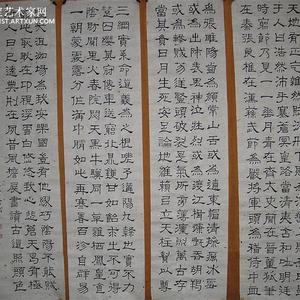 艺术网
.ARTXUN.COM
天地有正氣雜然賦流形下則為河嶽上則為日星
于人曰浩然沛乎塞蒼冥皇路當清夷含和吐明庭
時窮節乃見一一垂丹青在齊太史簡在晉董狐筆
在秦張良椎在漢蘇武節為嚴將軍頭為嵇侍中血
為張睢陽齒為顏常山舌或為遼東帽清操厲冰雪
或為出師表鬼神泣壯烈或為渡江楫慷慨吞胡羯
或為擊賊笏逆豎頭破裂是氣所磅礴凜烈萬古存
當其貫日月生死安足論地維賴以立天柱賴以尊
三綱實系命道義為之根嗟予遘陽九隸也實不力
楚囚纓其冠傳車送窮北鼎鑊甘如飴求之不可得
陰房闃鬼火春院閟天黑牛驥同一皂雞棲鳳凰食
一朝蒙霧露分作溝中瘠如此再寒暑百沴自辟易
沮洳場為我安樂國豈有他繆巧陰陽不能賊
此耿耿在仰視浮雲白悠悠我心悲蒼天曷有極
日已遠典刑在夙昔風檐展書讀古道照顏色